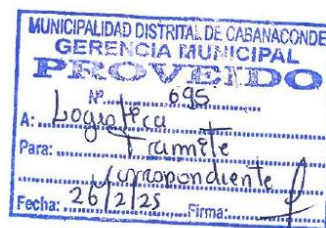 MUNICIPALIDAD DISTRITAL DE CABANACONDE
GERENCIA MUNICIPAL
PROVEIDO
Nº 695
A: Logistica
Para: Tramite
Correspondiente
Fecha: 26/2/25 Firma: